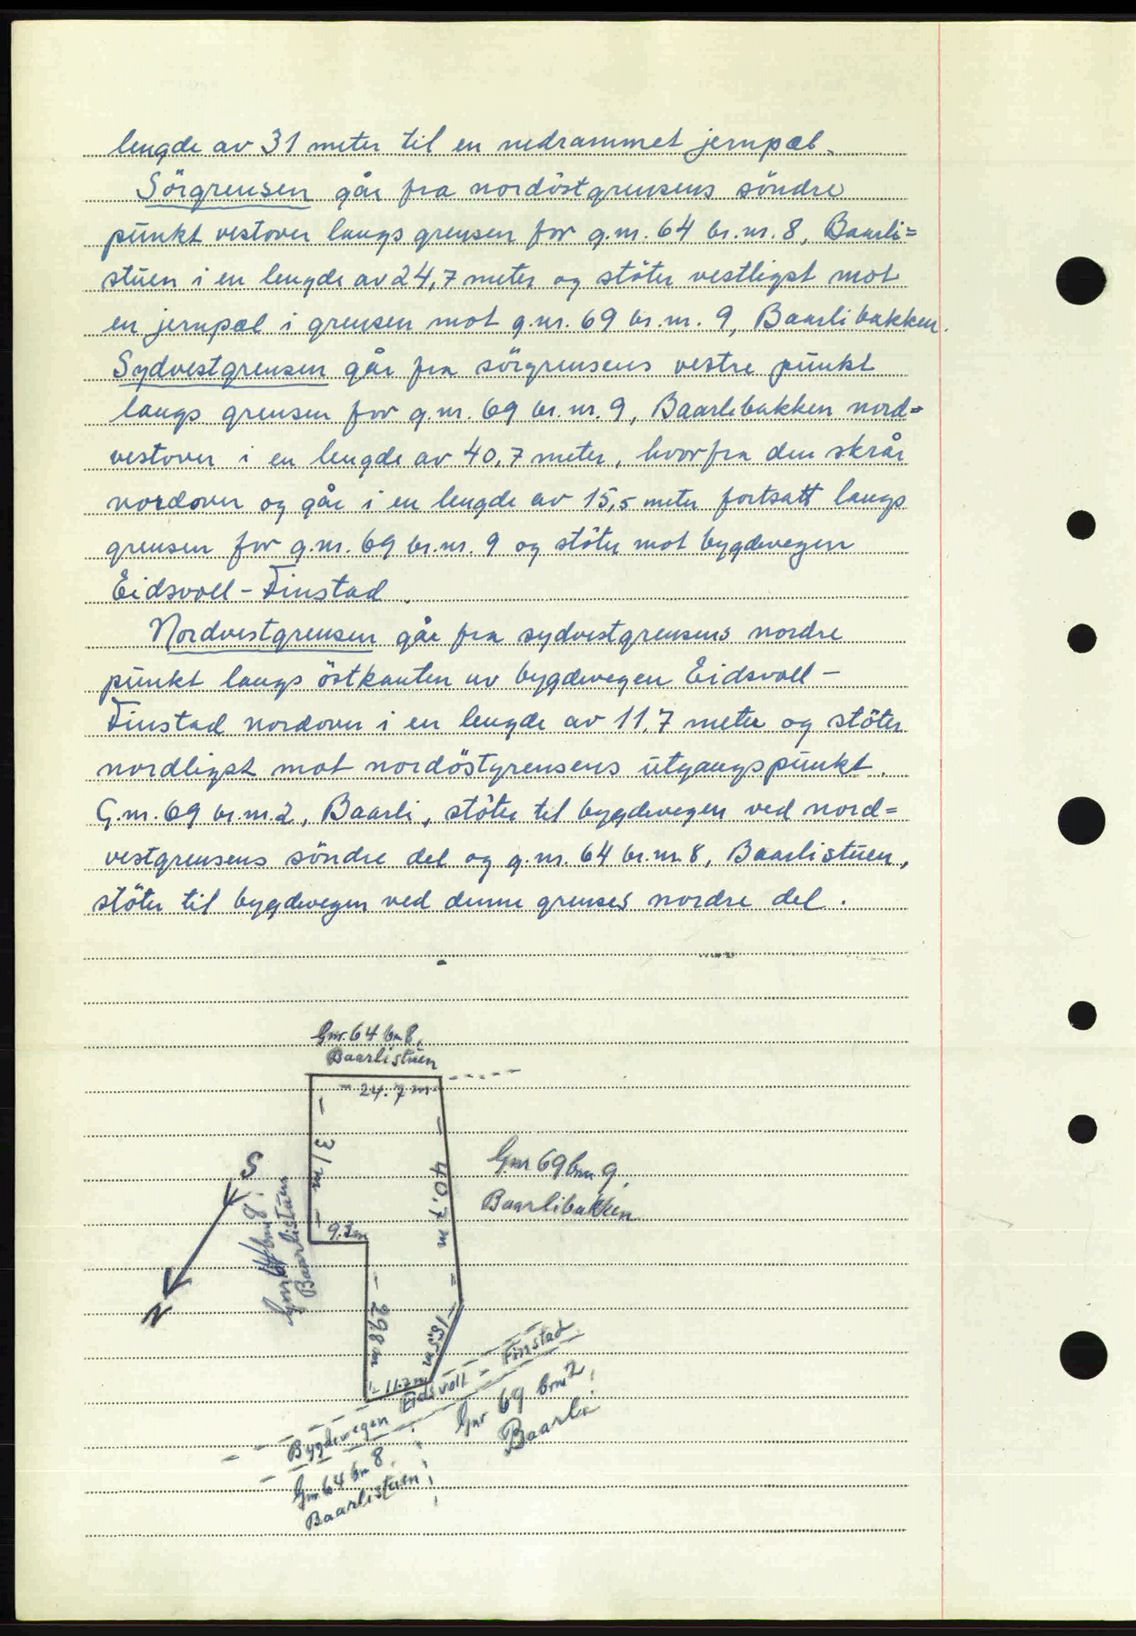 lengde av 31 meter til en nedrammet jernpæl.
Sörgrensen går fra nordöstgrensens söndre
punkt vestover langs grensen for g.nr. 64 br.nr. 8, Baarli=
stuen i en lengde av 24,7 meter og stöter vestligst mot
en jernpæl i grensen mot g.nr. 69 br.nr. 9, Baarlibakken.
Sydvestgrensen går fra sörgrensens vestre punkt
langs grensen for g.nr. 69 br.nr. 9, Baarlibakken nord=
vestover i en lengde av 40,7 meter, hvorfra den skrår
nordover og går i en lengde av 15,5 meter fortsatt langs
grensen for g.nr. 69 br.nr. 9 og stöter mot bygdevegen
Eidsvoll - Finstad.
Nordvestgrensen går fra sydvestgrensens nordre
punkt langs östkanten av bygdevegen Eidsvoll -
Finstad nordover i en lengde av 11,7 meter og stöter
nordligst mot nordöstgrensens utgangspunkt.
G.nr. 69 br.nr.2, Baarli, stöter til bygdevegen ved nord=
vestgrensens söndre del og g.nr. 64 br.nr.8, Baarlistuen,
stöter til bygdevegen ved denne grenses nordre del.
Gnr. 64 bnr 8,
Baarlistuen
- 24.7 m -
- 31 m -
- 40,7 m -
S
N
Gnr 64 bnr 8.
Baarlistuen
Gnr 69 bnr 9,
Baarlibakken
9.2m
- 29,8 m -
- 15,5 m
- 11.7 m
Bygdevegen Eidsvoll - Finstad
Gnr 69 bnr 2
Baarli
Gnr 64 bnr 8,
Baarlistuen